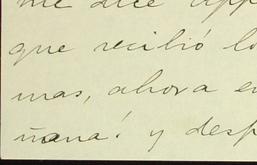 me dice
que recibió lo
mas, ahora en
ñana! y desp